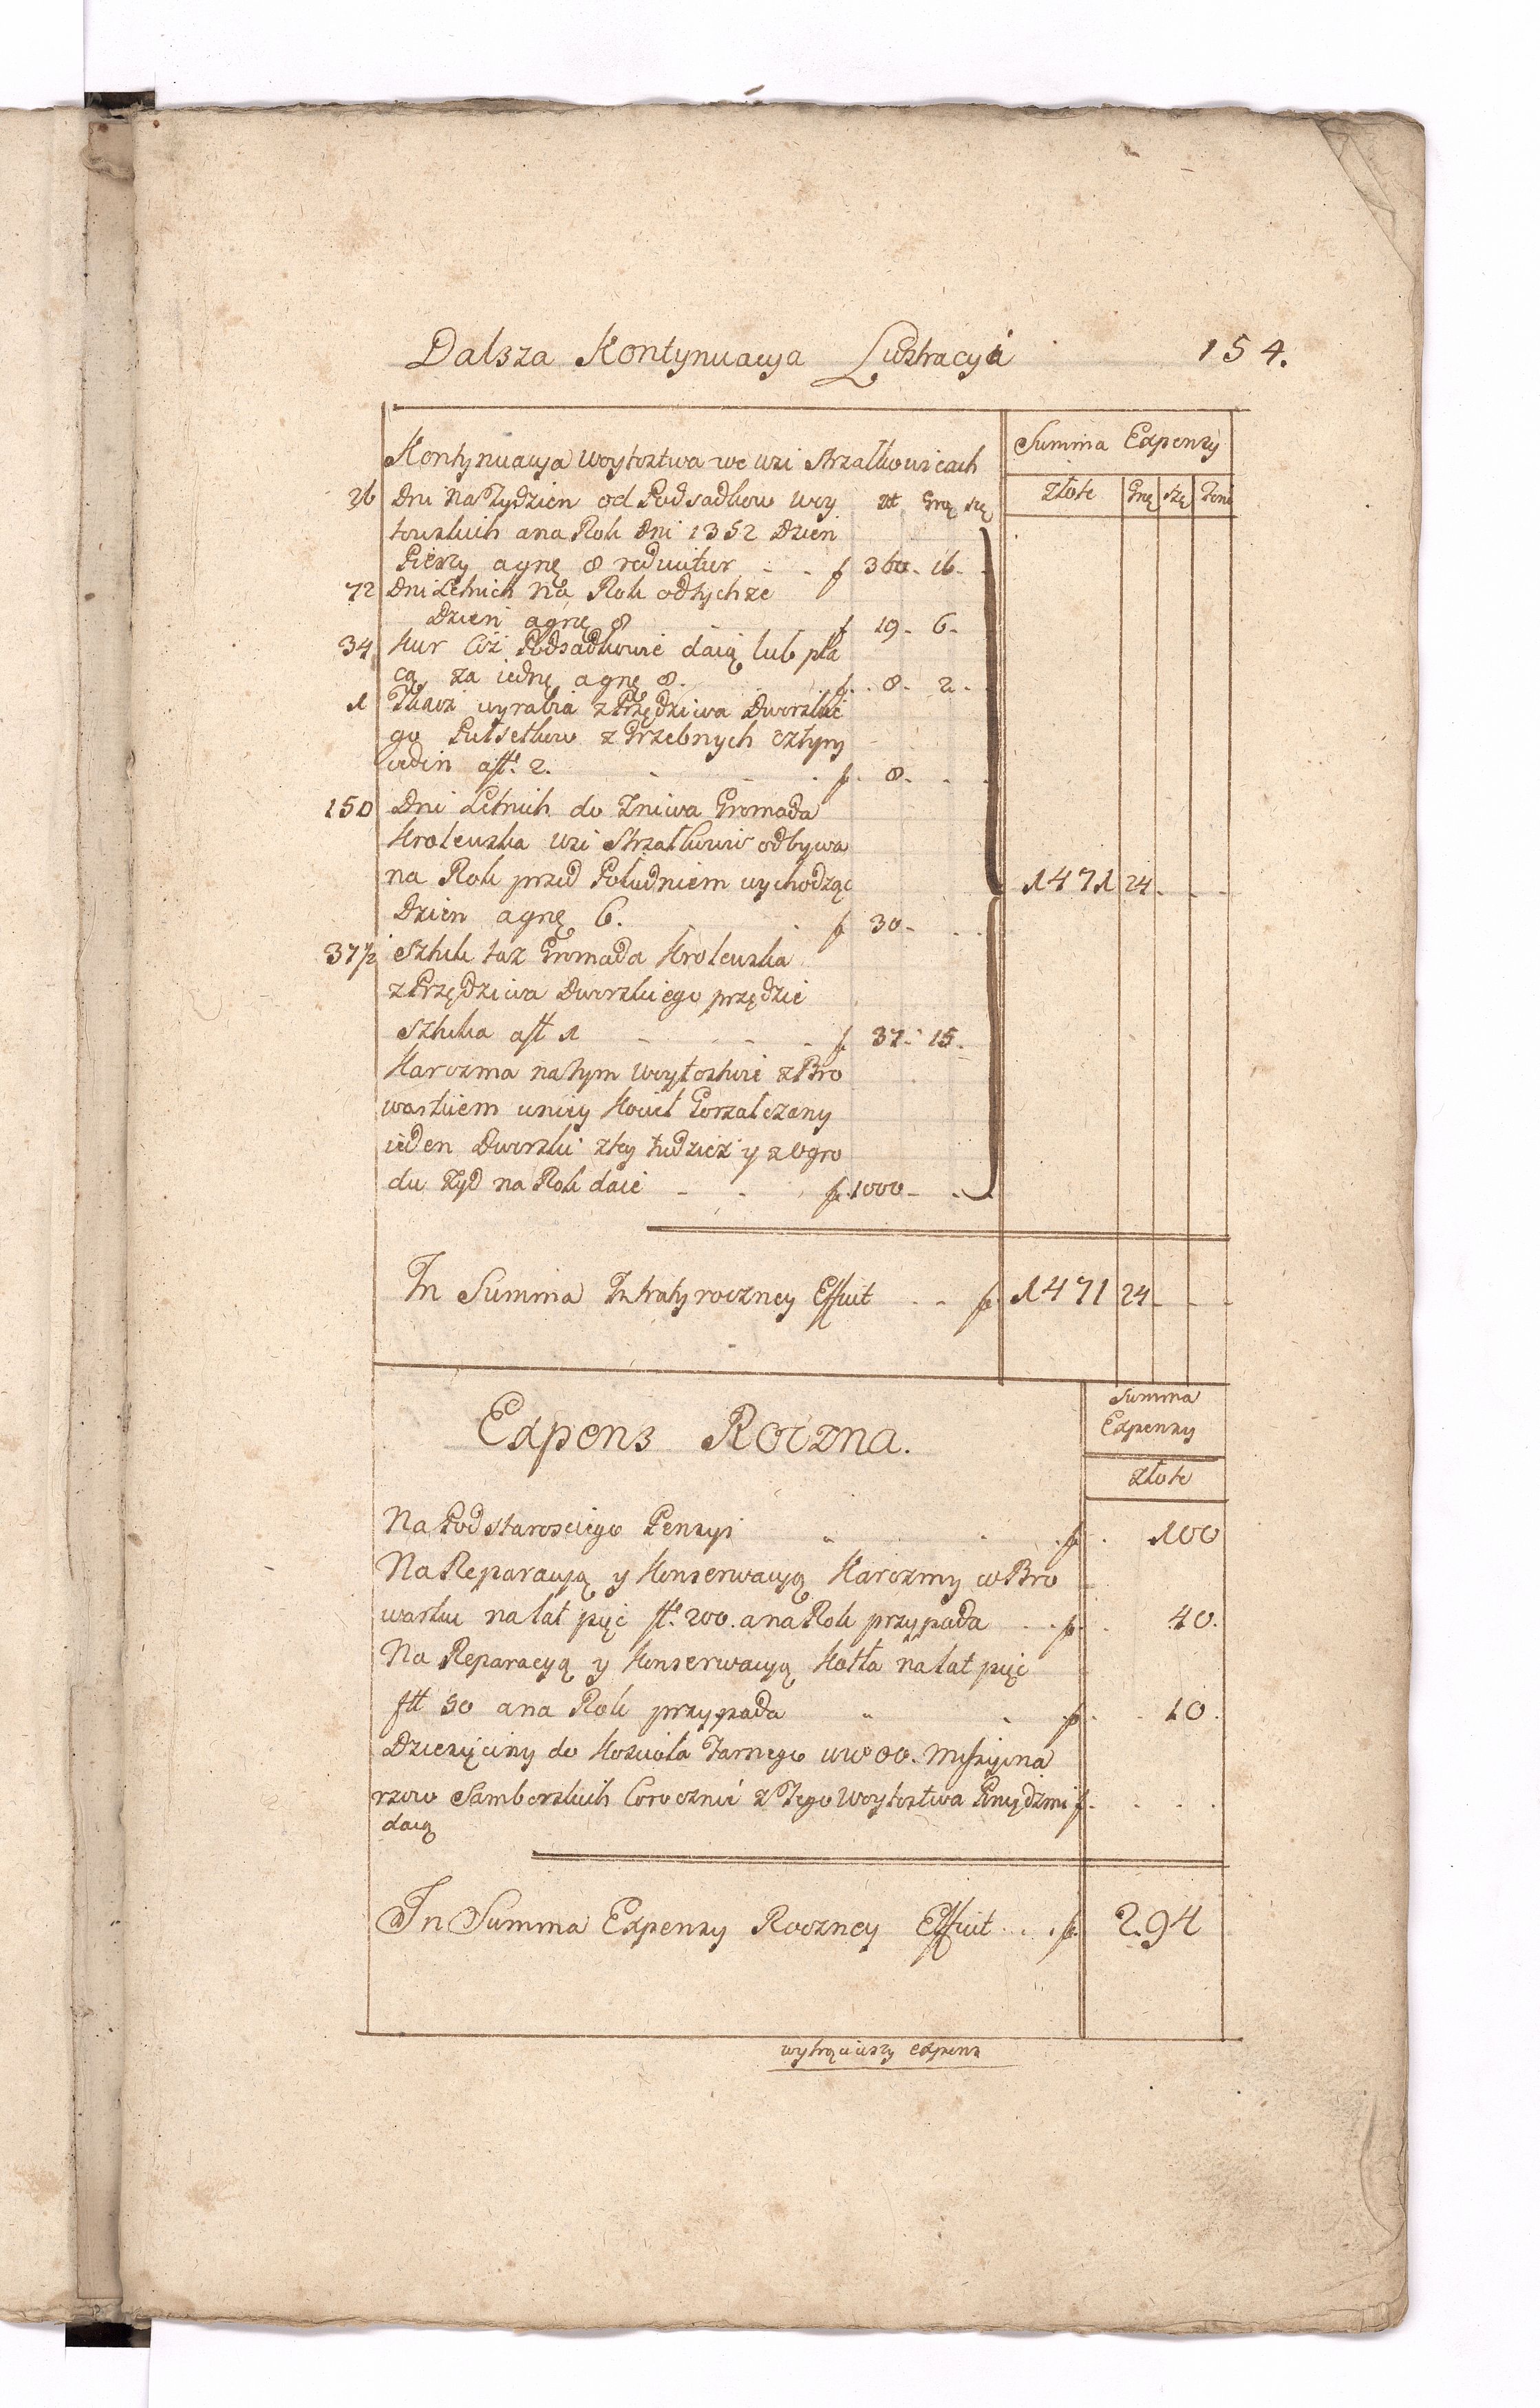 Dalsza Kontynuacya Lustracyi 154.
Kontynuacya Woytostwa we Wsi Strzałkowicach Summa Expensy
złote Grę szę Feni
26 Dni na Tydzien od Podsadkow Woy zł Grą szę
towskich a na Rok Dni 1352 Dzień
Pieszy a grę 8 reducitur f 360. 16.
72 Dni Letnich na Rok od tychże
Dzień a grę 8 f 19. 6.
34 Kur Ciż Podsadkowie daią lub pła
cą za iednę a grę 8. f. 8. 2.
1 Tkacz wyrabia z Przędziwa Dworskie
go Pułsetkow z Grzebnych cztyry
ieden a fł. 2. f. 8.
150 Dni Letnich do Żniwa Gromada
Krolewska Wsi Strzałkowic odbywa
na Rok przed Południem wychodząc 1471 24
Dzien a grę 6. f 30.
37½ Sztuk taż Gromada Krolewska
z Przędziwa Dworskiego przędzie
Sztuka a fł 1 f 37. 15.
Karczma na tym Woytostwie z Bro
warkiem w niey Kocieł Gorzałczany
ieden Dworski zły tudziesz y z Ogro
du Żyd na Rok daie f. 1000
In Summa Intraty roczney Efficit f. 1471 24
Expens Roczna.
Summa
Expensy
złote
Na Podstarosciego Pensyi f. 100
Na Reparacyą y Konserwacyą Karczmy w Bro
warku na lat pięć fł. 200. a na Rok przypada f. 40.
Na Reparacyą y Konserwacyą Kotła na lat pięć
fł 50 a na Rok przypada f. 10.
Dziesięciny do Kosciola Farnego WW OO. Missyona
rzow Samborskich Corocznie z Tego Woytostwa Pieniędzmi f.
daią
In Summa Expensy Roczney Efficit f. 294
wytrąciwszy expens